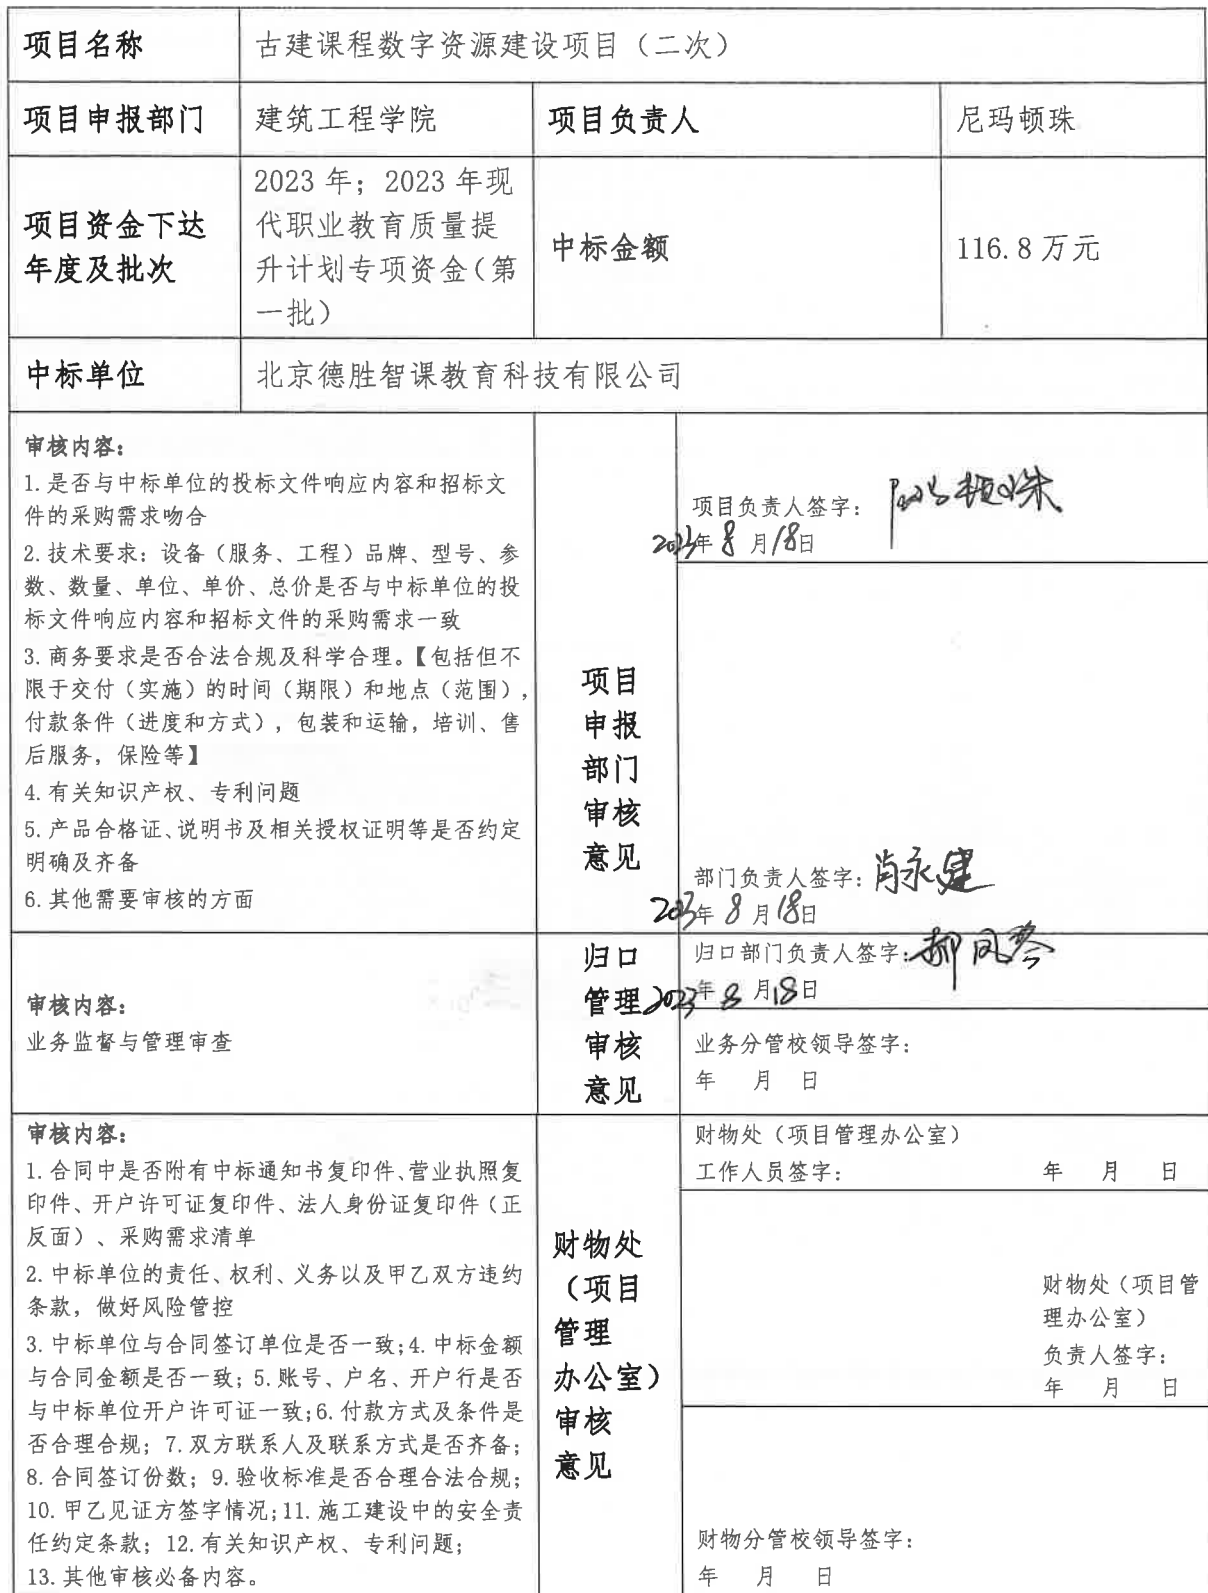 项目名称
古建课程数字资源建设项目（二次）
项目申报部门
建筑工程学院
项目负责人
尼玛顿珠
项目资金下达
年度及批次
2023 年；2023 年现
代职业教育质量提
升计划专项资金（第
一批）
中标金额
116.8 万元
中标单位
北京德胜智课教育科技有限公司
审核内容：
1. 是否与中标单位的投标文件响应内容和招标文
件的采购需求吻合
2. 技术要求：设备（服务、工程）品牌、型号、参
数、数量、单位、单价、总价是否与中标单位的投
标文件响应内容和招标文件的采购需求一致
3. 商务要求是否合法合规及科学合理。【包括但不
限于交付（实施）的时间（期限）和地点（范围），
付款条件（进度和方式），包装和运输，培训、售
后服务，保险等】
4. 有关知识产权、专利问题
5. 产品合格证、说明书及相关授权证明等是否约定
明确及齐备
6. 其他需要审核的方面
项目
申报
部门
审核
意见
项目负责人签字：尼玛顿珠
2023年 8 月 18日
部门负责人签字：肖永建
2023年 8 月 18日
审核内容：
业务监督与管理审查
归口
管理
审核
意见
归口部门负责人签字：郝凤琴
2023年 8 月 18日
业务分管校领导签字：
年 月 日
审核内容：
1. 合同中是否附有中标通知书复印件、营业执照复
印件、开户许可证复印件、法人身份证复印件（正
反面）、采购需求清单
2. 中标单位的责任、权利、义务以及甲乙双方违约
条款，做好风险管控
3. 中标单位与合同签订单位是否一致；4. 中标金额
与合同金额是否一致；5. 账号、户名、开户行是否
与中标单位开户许可证一致；6. 付款方式及条件是
否合理合规；7. 双方联系人及联系方式是否齐备；
8. 合同签订份数；9. 验收标准是否合理合法合规；
10. 甲乙见证方签字情况；11. 施工建设中的安全责
任约定条款；12. 有关知识产权、专利问题；
13. 其他审核必备内容。
财物处
（项目
管理
办公室）
审核
意见
财物处（项目管理办公室）
工作人员签字： 年 月 日
财物处（项目管
理办公室）
负责人签字：
年 月 日
财物分管校领导签字：
年 月 日